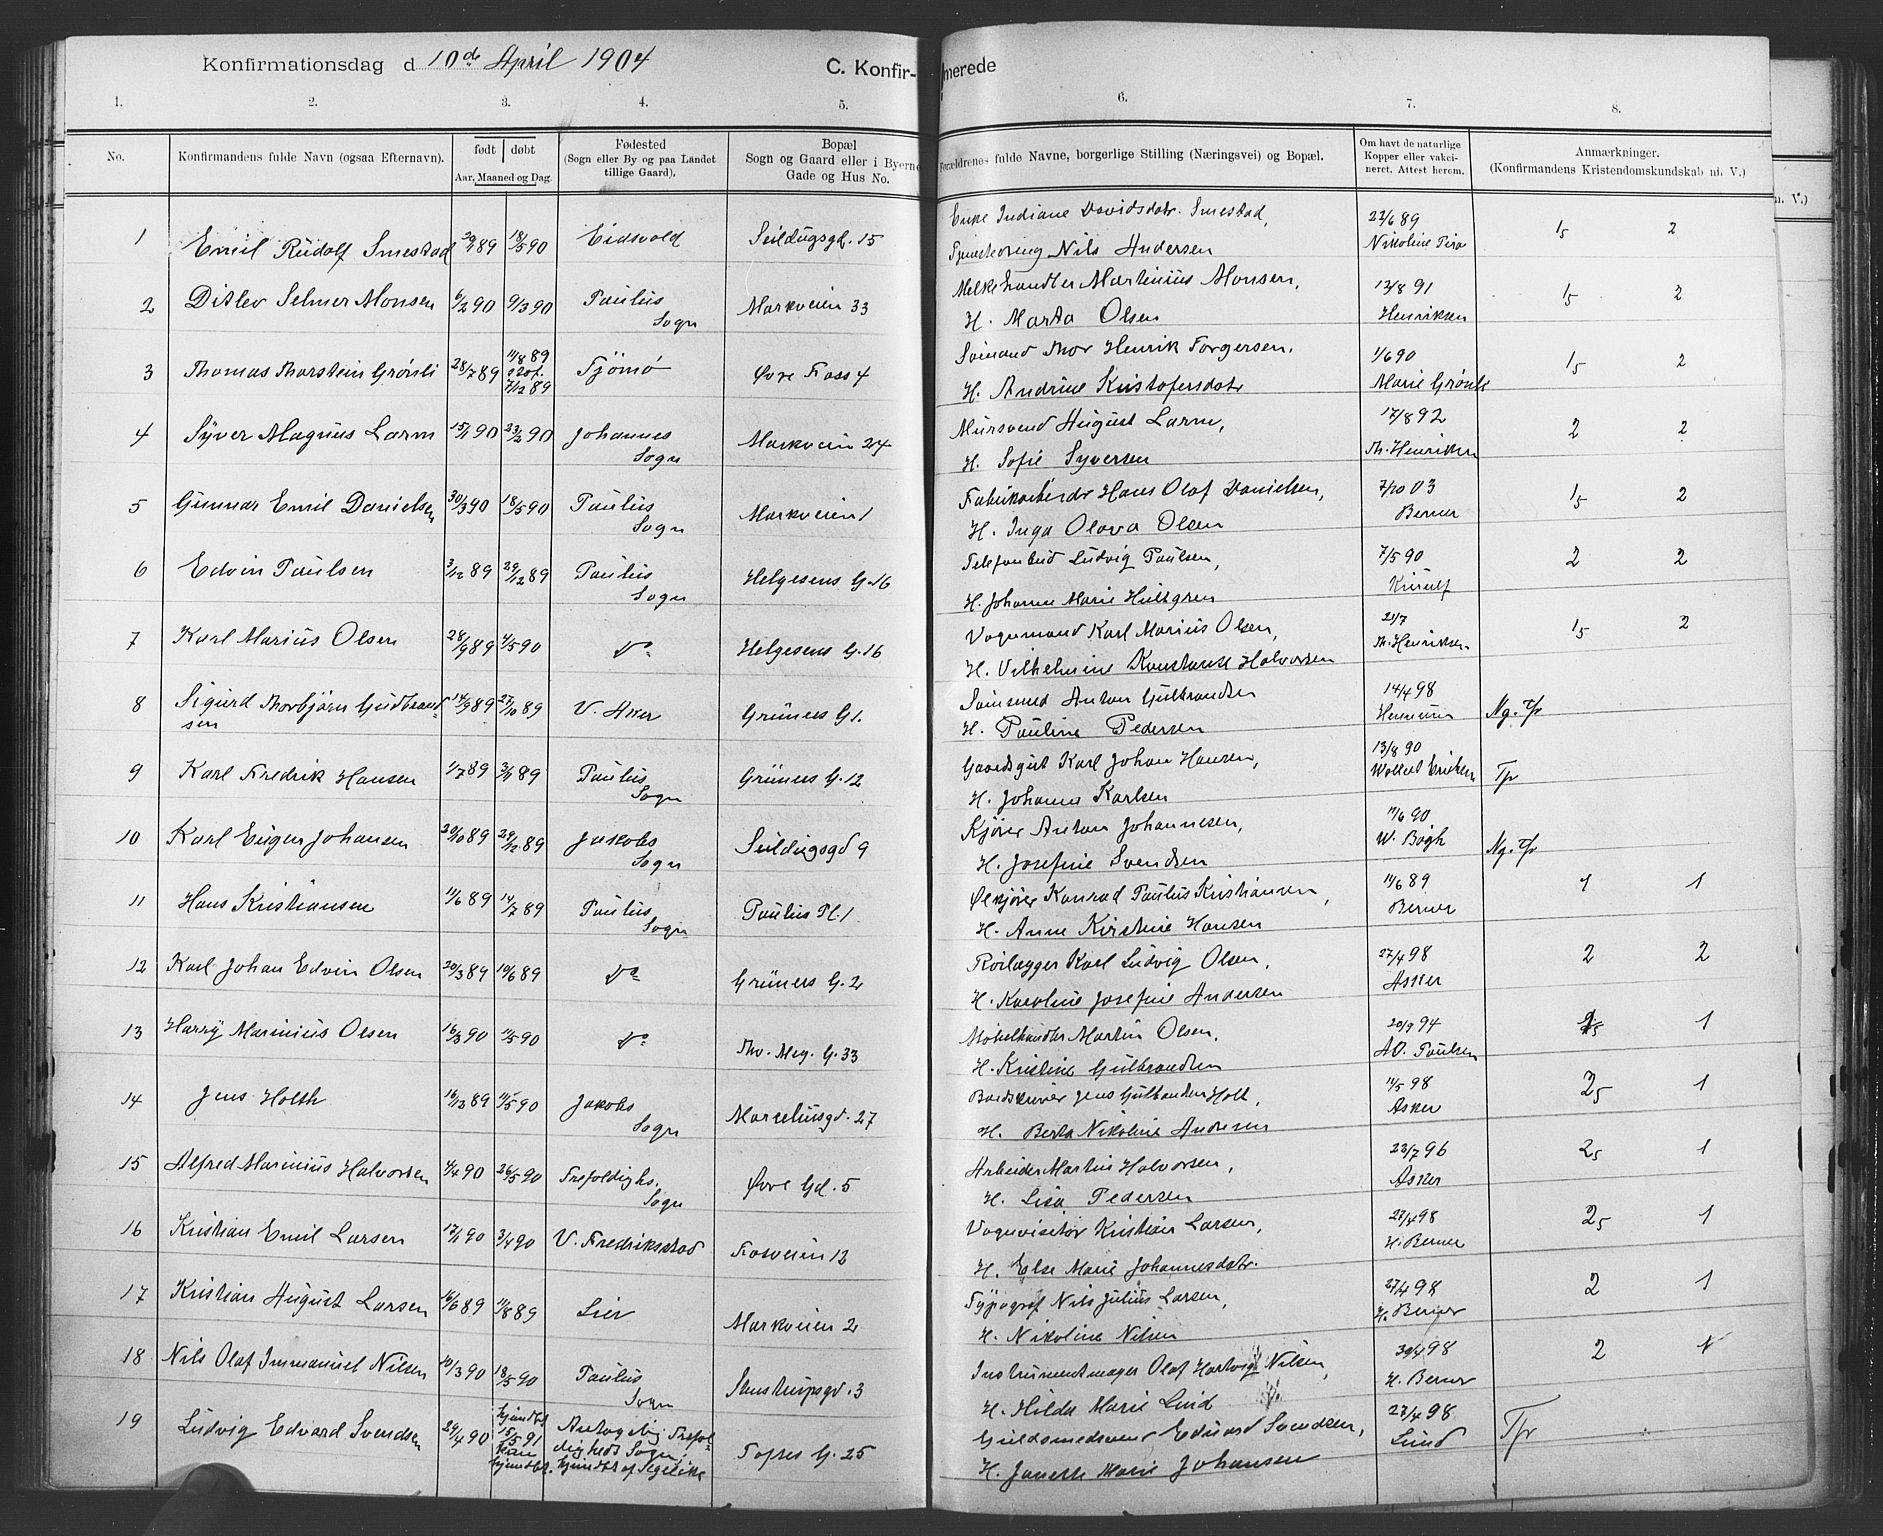 Konfirmationsdag d 10de April 1904
C. Konfir-merede
1. 2. 3. 4. 5. 6. 7. 8.
No.
Konfirmandens fulde Navn (ogsaa Efternavn).
født døbt
Aar, Maaned og Dag.
Fødested
(Sogn eller By og paa Landet
tillige Gaard).
Bopæl
Sogn og Gaard eller i Byerne
Gade og Hus No.
Forældrenes fulde Navne, borgerlige Stilling (Næringsvei) og Bopæl.
Om havt de naturlige
Kopper eller vakci-
neret. Attest herom.
Anmærkninger.
(Konfirmandens Kristendomskundskab nb. V.)
n. V.)
1 Emil Rudolf Smestad 89 18/5 90 Eidsvold Seildugsgd. 15
Enke Indiane Davidsdatr. Smestad, 22/6 89 15 2
Nils Andersen Nikoline
2 Ditlev Selmer Monsen 6/2 90 9/3 90 Paulus Sogn Markveien 33
Melkehandler Martinius Monsen, 13/8 91 15 2
H. Marta Olsen Henriksen
3 Thomas Thorstein Grønli 28/7 89 11/8 89 7/12 89 Tjømø Øvre Foss 4
Sømand Thor Henrik Torgersen, 1/6 90 15 2
H. Andrine Kristofersdatr Marie Grønli
4 Syver Magnus Larm 15/1 90 23/2 90 Johannes Sogn Markveien 24
Mursvend August Larm, 17/8 92 2 2
H. Sofie Syversen Th. Henriksen
5 Gunnar Emil Danielsen 30/3 90 18/5 90 Paulus Sogn Markveien 1
Fabrikarbeider Hans Olaf Danielsen, 7/10 03 15 2
H. Inga Olava Olsen Berner
6 Edvin Paulsen 3/12 89 29/12 89 Paulus Sogn Helgesens G. 16
Telefonbud Ludvig Paulsen, 7/5 90 2 2
H. Johanne Marie Hultgren Kierulf
7 Karl Marius Olsen 28/9 89 4/5 90 Do Helgesens G. 16
Vognmand Karl Marius Olsen, 21/7 15 2
H. Vilhelmine Konstanse Halvorsen Th. Henriksen
8 Sigurd Thorbjørn Gudbrand- 14/9 89 27/10 89 V. Aker Grüners G 1.
sen
Anton Gulbrandsen 14/4 98 Ng. Tfr
H. Pauline Pedersen
9 Karl Fredrik Hansen 1/7 89 3/11 89 Paulus Sogn Grüners G. 12
Gaardsgut Karl Johan Hansen, 13/8 90
H. Johanna Karlsen Wollert Eriksen Tfr
10 Karl Eugen Johansen 20/10 89 29/12 89 Jakobs Sogn Seildugsgd 9
Kjører Anton Johannesen, 11/6 90
H. Josefine Svendsen W. Bøgh Ng. Tfr
11 Hans Kristiansen 11/6 89 14/7 89 Paulus Sogn Paulus Pl. 1
Ølkjører Konrad Paulus Kristiansen, 14/6 89 1 1
H. Anne Kirstine Hansen Berner
12 Karl Johan Edvin Olsen 20/3 89 10/6 89 Do Grüners G. 2
Rørlægger Karl Ludvig Olsen, 27/4 98 2 2
H. Karoline Josefine Andersen Asker
13 Harry Marinius Olsen 16/3 90 11/5 90 Do Thv. Meg. G. 33
Møbelhandler Martin Olsen, 20/9 94 1
H. Kristine Gulbrandsen Paulsen
14 Jens Holth 16/12 89 11/5 90 Jakobs Sogn Marseliusgd. 27
Jens Gulbrandsen Holt, 11/5 98 25 1
H. Berta Nikoline Andresen Asker
15 Alfred Marinius Halvorsen 4/4 90 26/5 90 Trefoldighs. Sogn Øvre Gd. 5
Arbeider Martin Halvorsen, 23/7 96 25 1
H. Lisa Pedersen Asker
16 Kristian Emil Larsen 17/1 90 3/4 90 V. Fredriksstad Fosveien 12
Vognvisitør Kristian Larsen, 27/4 98 25 1
H. Else Marie Johannesdatr. H. Berner
17 Kristian August Larsen 16/6 89 11/8 89 Lier Markveien 2
Typograf Nils Julius Larsen, 27/4 98 2 1
H. Nikoline Nilsen H. Berner
18 Nils Olaf Immanuel Nilsen 10/3 90 18/5 90 Paulus Sogn Sanstrupsgd. 3
Instrumentmager Olaf Hartvig Nilsen, 30/4 98 2 1
H. Hilda Marie Lind H. Berner
19 Ludvig Edvard Svendsen 29/4 90 hjemdbt. 15/5 91 hjemdbt. Antagelig Trefol-
digheds Sogn, Toftes G. 25
hjemdbt af
Guldsmedsvend Eduard Svendsen, 27/4 98 Tfr
H. Janette Marie Johansen Lund